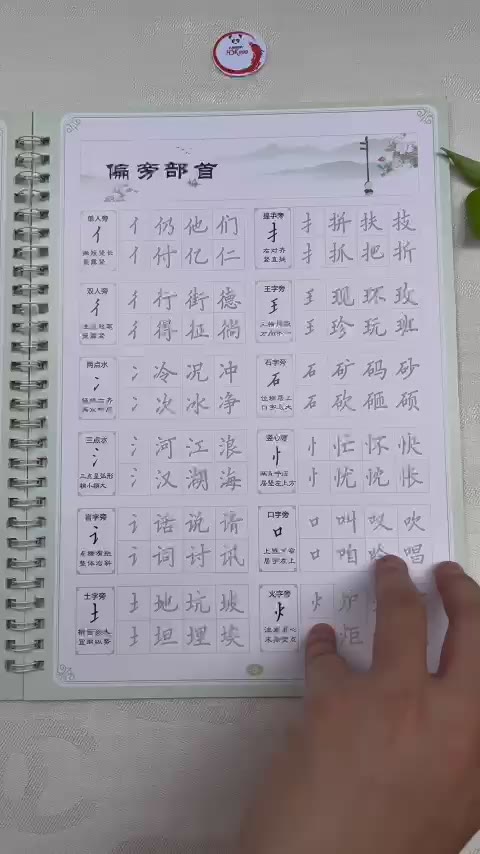 偏旁部首
单人旁
亻
亻仍他们
亻付亿仁
双人旁
彳
彳行街德
彳得征徜
两点水
冫
冫冷况冲
冫次冰净
三点水
氵
三点呈弧形
氵河江浪
氵汉湖海
言字旁
讠
讠话说请
讠词讨讯
土字旁
土
土地坑坡
土坦埋埃
提手旁
扌
右对齐
竖直挺
扌拼扶技
扌抓把折
王字旁
王
王现环玫
王珍玩班
石字旁
石
石矿码砂
石砍砸硕
竖心旁
忄
忄忙怀快
忄忧忱怅
口字旁
口
口叫叹吹
口咱唱
火字旁
火
火炉
炬